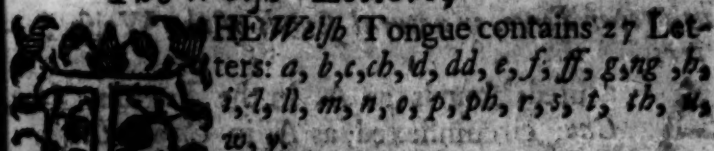 THE Welſh Tongue contains 27 Let-
ters: a, b, c, ch, d, dd, e, f, ff, g, ng, h,
i, l, ll, m, n, o, p, ph, r, s, t, th, u,
w, y.